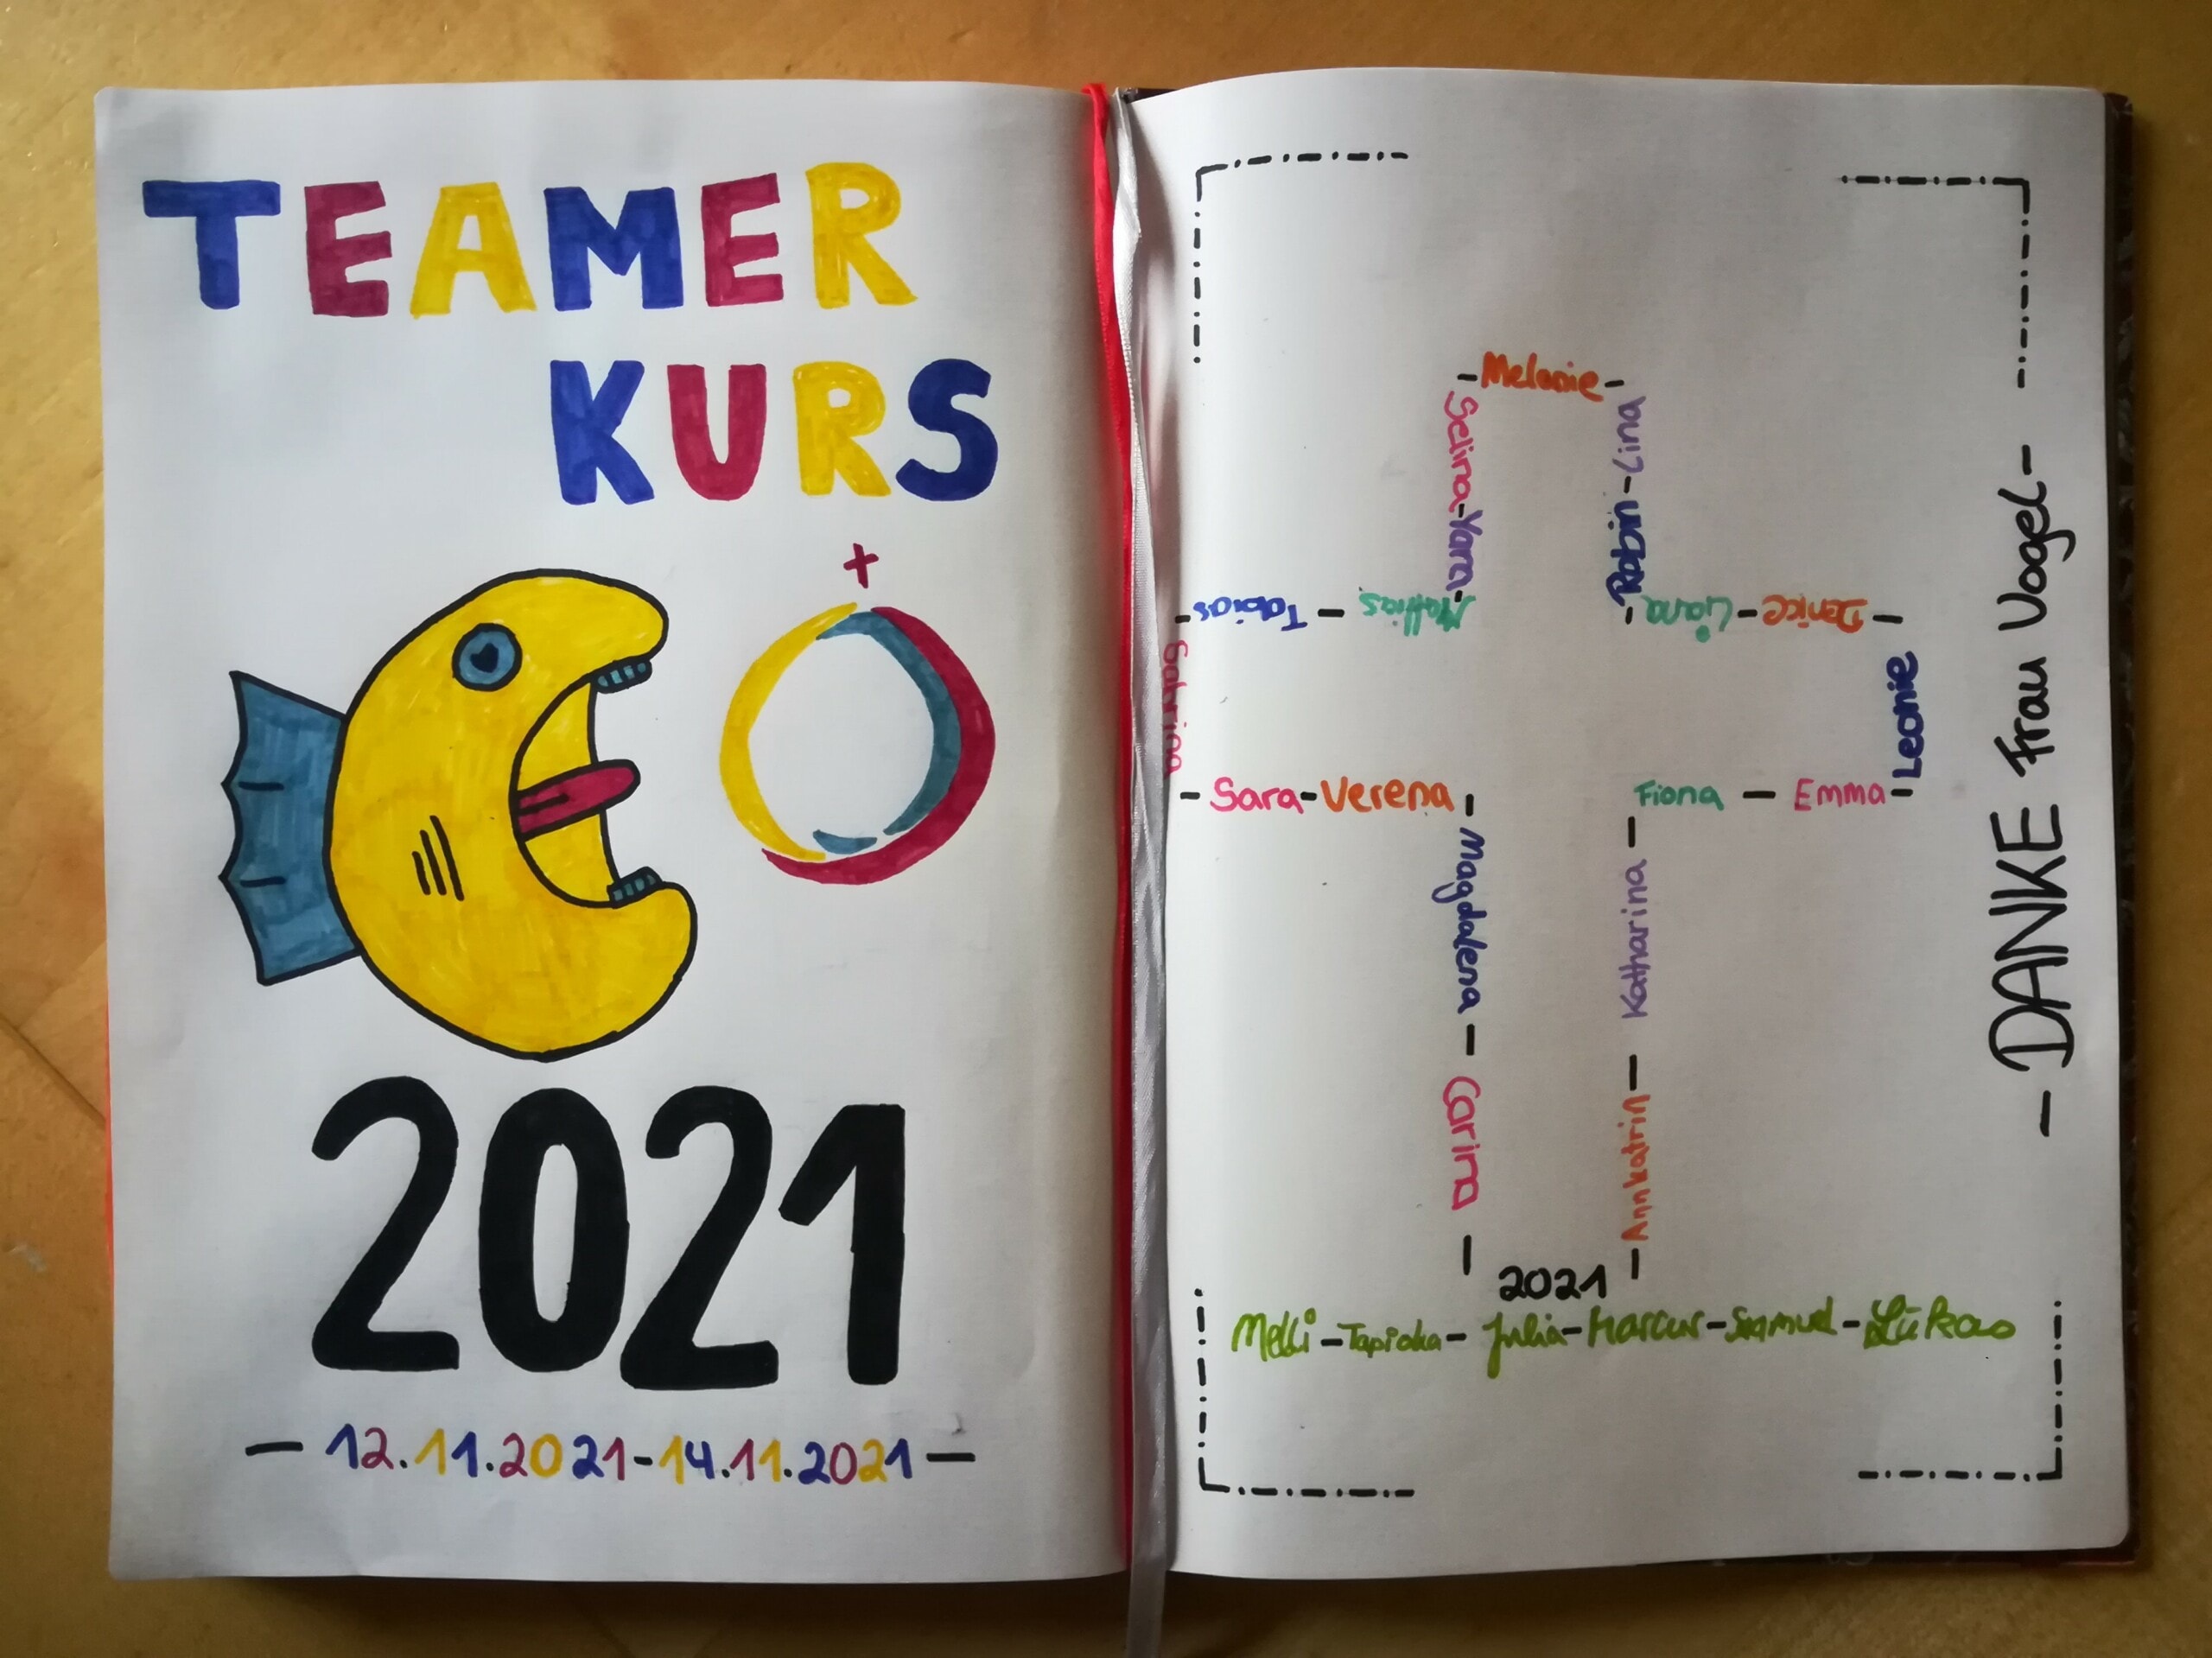 TEAMER
KURS
2021
— 12.11.2021-14.11.2021 —
- Melonie -
Seirna-Yara-
Robin-Lina
Tobias - Mattias
- Liana - Denice -
Sabrina
Leonie
- Sara - Verena -
Fiona - Emma -
Magdalena - Carina -
- Annkatrin - Katharina -
2021
Melli - Tapioka - Julia - Marcus - Samuel - Lukas
- DANKE Frau Vogel -